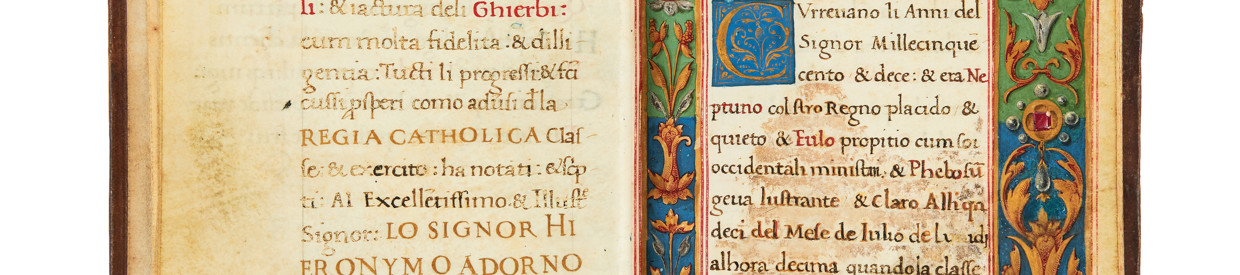 li: & iactura deli Ghierbi:
cum molta fidelita: & dilli
gentia: Tucti li progressi: & fā
cussi ꝓsperi como aduẜi d la
REGIA CATHOLICA Clas
se: & exercito: ha notati: & scp
ti: Al Excellētissimo & Illust
Signor: LO SIGNOR HI
ERONYMO ADORNO
Vrreuano li Anni del
Signor Millecinque
cento & dece: & era Ne
ptuno col stro Regno placido &
quieto & Eulo propitio cum soi
occidentali ministri, & Phebo sū
geua lustrante & Claro Alli
deci del Mese de Iulio de
alhora decima quando la classe